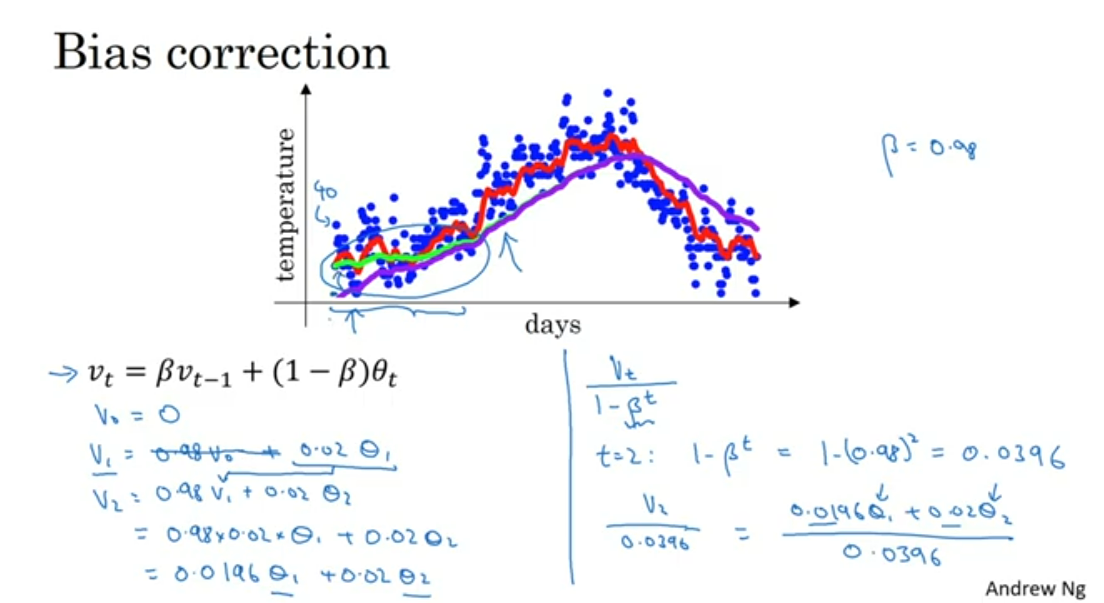 Bias correction
temperature
40
days
β = 0.98
→ vₜ = βvₜ₋₁ + (1 − β)θₜ
V₀ = 0
V₁ = 0.98 V₀ + 0.02 θ₁
V₂ = 0.98 V₁ + 0.02 θ₂
= 0.98 x 0.02 x θ₁ + 0.02 θ₂
= 0.0196 θ₁ + 0.02 θ₂
Vₜ
1 - βᵗ
t=2: 1 - βᵗ = 1 - (0.98)² = 0.0396
V₂
0.0396
=
0.0196 θ₁ + 0.02 θ₂
0.0396
Andrew Ng